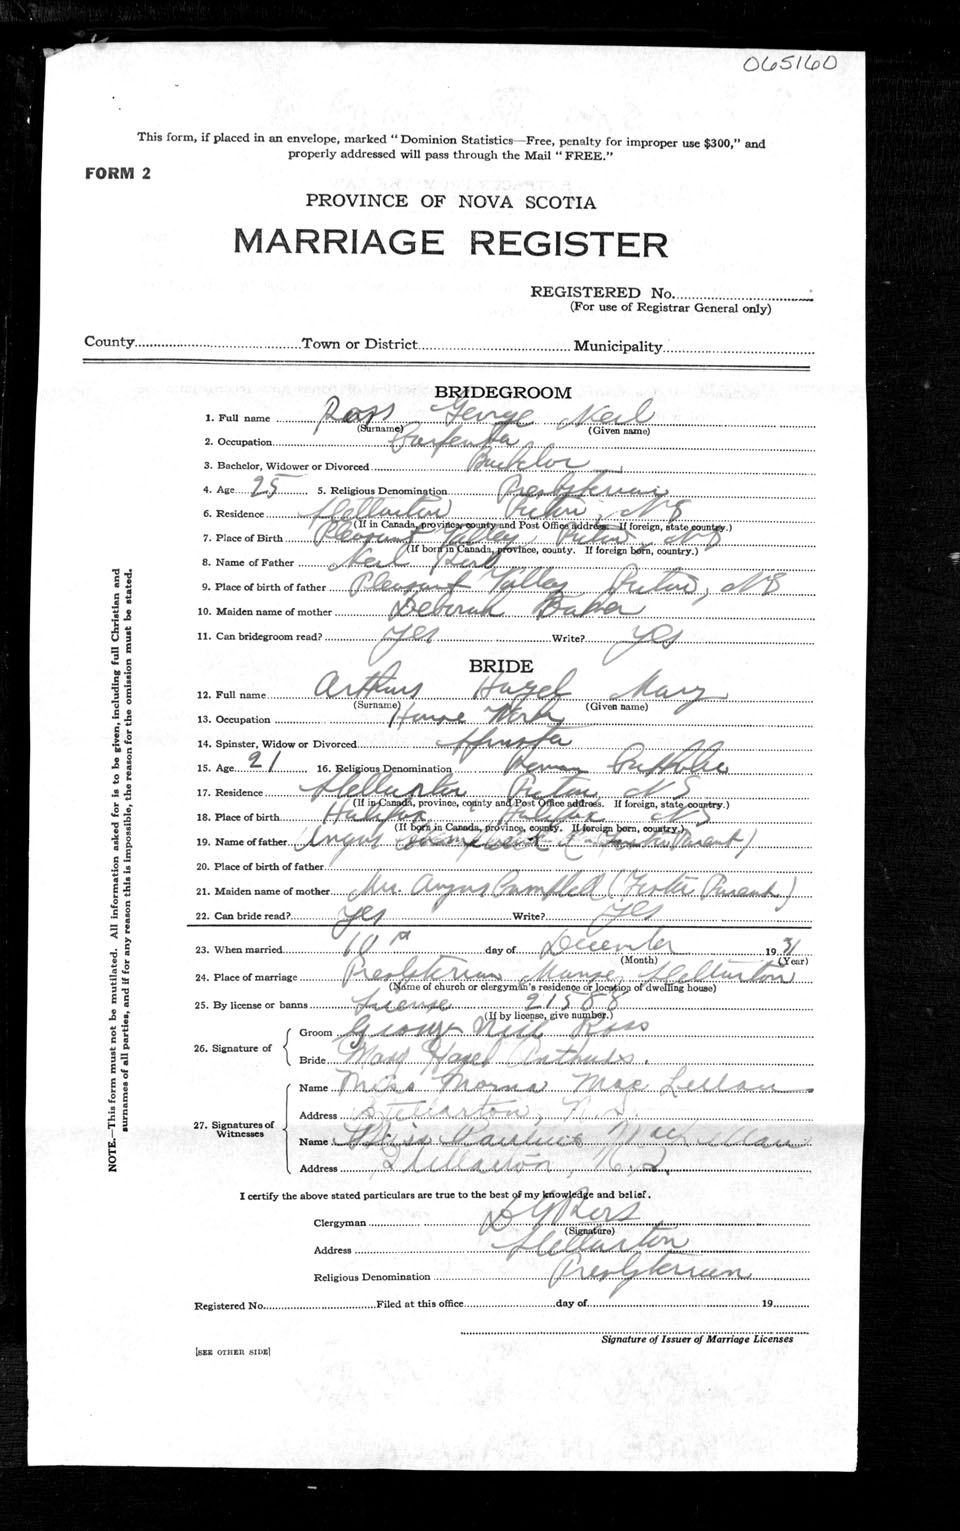 065160
This form, if placed in an envelope, marked "Dominion Statistics—Free, penalty for improper use $300," and
properly addressed will pass through the Mail "FREE."
FORM 2
PROVINCE OF NOVA SCOTIA
MARRIAGE REGISTER
REGISTERED No.
(For use of Registrar General only)
County Town or District Municipality
BRIDEGROOM
1. Full name Ross George Neil
(Surname) (Given name)
2. Occupation Carpenter
3. Bachelor, Widower or Divorced Bachelor
4. Age 25 5. Religious Denomination Presbyterian
6. Residence Stellarton Pictou, NS
(If in Canada, province, county and Post Office address. If foreign, state country.)
7. Place of Birth Pleasant Valley, Pictou, NS
(If born in Canada, province, county. If foreign born, country.)
8. Name of Father Neil
9. Place of birth of father Pleasant Valley Pictou, NS
10. Maiden name of mother Deborah Baker
11. Can bridegroom read? yes Write? yes
BRIDE
12. Full name Arthurs Hazel Mary
(Surname) (Given name)
13. Occupation House Work
14. Spinster, Widow or Divorced Spinster
15. Age 21 16. Religious Denomination Roman Catholic
17. Residence Stellarton Pictou NS
(If in Canada, province, county and Post Office address. If foreign, state country.)
18. Place of birth Halifax Halifax NS
(If born in Canada, province, county. If foreign born, country.)
19. Name of father (Angus Campbell (Foster Parent)
20. Place of birth of father
21. Maiden name of mother Mrs. Angus Campbell (Foster Parent)
22. Can bride read? yes Write? yes
23. When married 10 day of December 1931
(Month) (Year)
24. Place of marriage Presbyterian Manse, Stellarton
(Name of church or clergyman's residence or location of dwelling house)
25. By license or banns License 21588
(If by license, give number.)
26. Signature of
Groom George Neil Ross
Bride Mary Hazel Arthurs.
27. Signatures of Witnesses
Name Miss Morna MacLellan
Address Stellarton, N.S.
Name Miss MacLellan
Address Stellarton, N.S.
I certify the above stated particulars are true to the best of my knowledge and belief.
Clergyman D G Ross
(Signature)
Address Stellarton
Religious Denomination Presbyterian
Registered No. Filed at this office day of 19
Signature of Issuer of Marriage Licenses
[SEE OTHER SIDE]
NOTE.—This form must not be mutilated. All information asked for is to be given, including full Christian and
surnames of all parties, and if for any reason this is impossible, the reason for the omission must be stated.